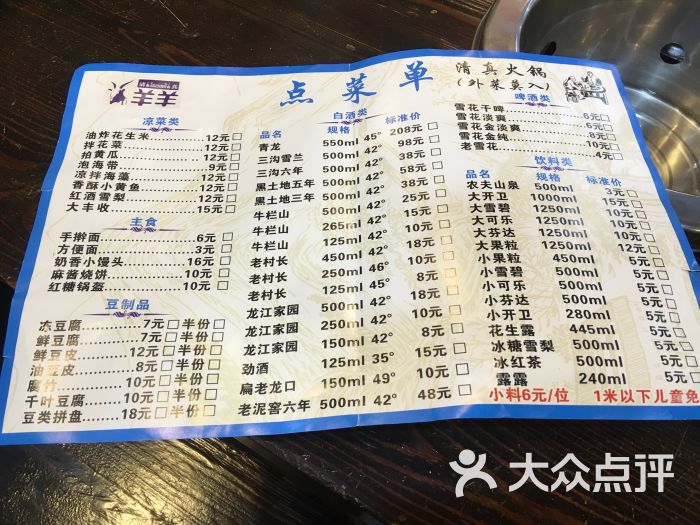 清真
羊羊
点菜单
清真火锅
(外菜莫入)
凉菜类
油炸花生米……12元□
拌花菜……12元□
拍黄瓜……12元□
泡海带……9元□
凉拌海藻……12元□
香酥小黄鱼……12元□
红酒雪梨……12元□
大丰收……15元□
主食
手擀面……6元□
方便面……3元□
奶香小馒头……16元□
麻酱烧饼……10元□
红糖锅盔……10元□
豆制品
冻豆腐……7元□半份□
鲜豆腐……7元□半份□
鲜豆皮……12元□半份□
油豆皮……8元□半份□
腐竹……10元□半份□
千叶豆腐……10元□半份□
豆类拼盘……18元□半份□
白酒类
品名 规格 标准价
青龙 550ml 45° 208元□
三沟雪兰 500ml 42° 98元□
三沟六年 500ml 42° 38元□
黑土地五年 500ml 42° 58元□
黑土地三年 500ml 42° 38元□
牛栏山 500ml 42° 25元□
牛栏山 265ml 42° 15元□
牛栏山 125ml 42° 10元□
老村长 450ml 42° 18元□
老村长 260ml 42° 10元□
龙江家园 500ml 42° 18元□
龙江家园 250ml 42° 10元□
龙江家园 150ml 42° 8元□
劲酒 125ml 35° 15元□
扁老龙口 150ml 49° 10元□
老泥窖六年 500ml 42° 48元□
啤酒类
雪花干啤……6元□
雪花淡爽……6元□
雪花金淡爽……6元□
雪花金纯……8元□
老雪花……4元□
饮料类
品名 规格 标准价
农夫山泉 500ml 3元□
大开卫 1000ml 15元□
大雪碧 1250ml 10元□
大可乐 1250ml 10元□
大芬达 1250ml 10元□
大果粒 1250ml 12元□
小果粒 450ml 5元□
小雪碧 500ml 5元□
小可乐 500ml 5元□
小芬达 500ml 5元□
小开卫 280ml 5元□
花生露 445ml 5元□
冰糖雪梨 500ml 5元□
冰红茶 500ml 5元□
露露 240ml 5元□
小料6元/位 1米以下儿童免
大众点评